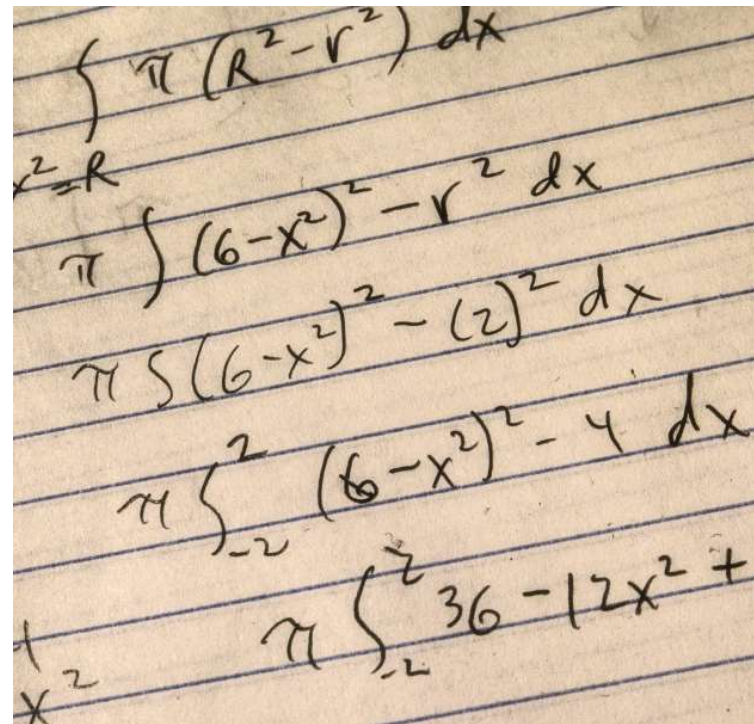 ∫ π (R² - r²) dx
x² = R
π ∫ (6-x²)² - r² dx
π ∫ (6-x²)² - (2)² dx
π ∫₋₂² (6-x²)² - 4 dx
π ∫₋₂² 36 - 12x² +
x²